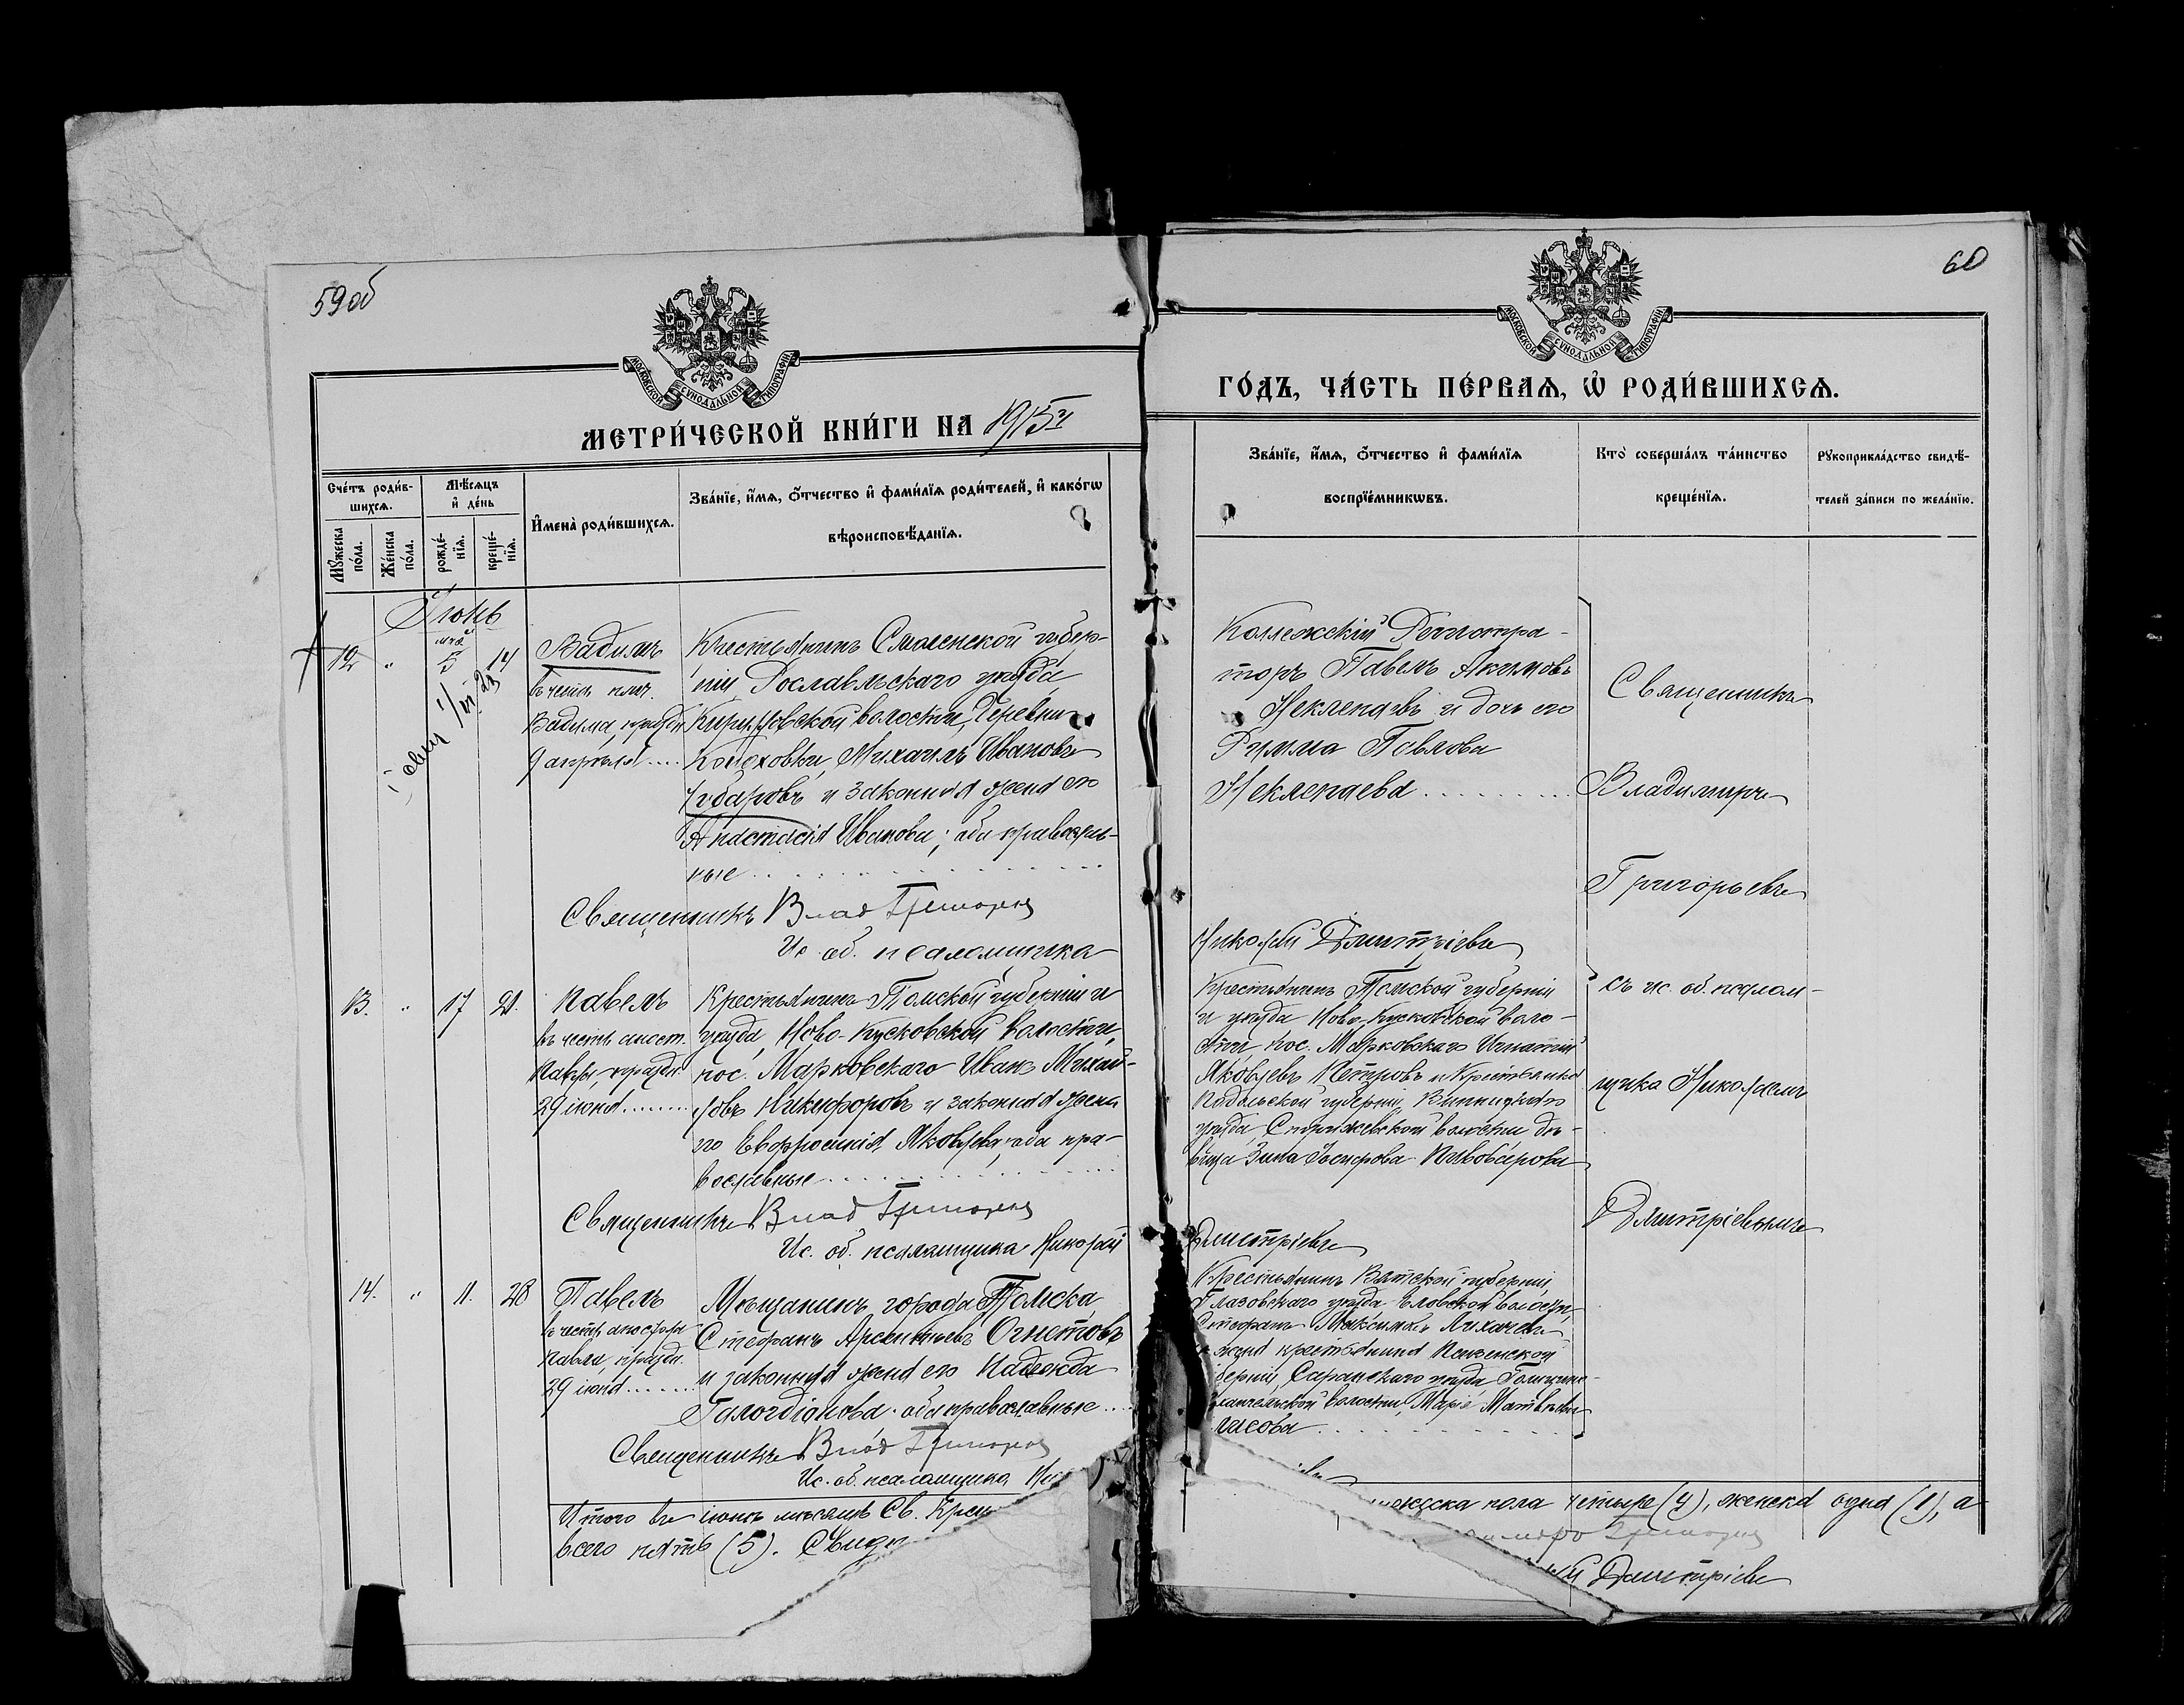 59 об
МОСКОВСКОЙ СѴНОДАЛЬНОЙ ТИПОГРАФІИ
МЕТРИ́ЧЕСКОЙ КНИ́ГИ НА 1915 г
Сче́тъ роди́в-
шихсѧ.
Мꙋ́жеска
по́ла.
Же́нска
по́ла.
Мѣ́сѧцъ
и҆ де́нь
рожде́-
нїѧ.
креще́-
нїѧ.
И҆мена̀ роди́вшихсѧ.
Зва́нїе, и҆́мѧ, ѻ҆́тчество и҆ фами́лїѧ роди́телей, и҆ како́гѡ
вѣроисповѣ́данїѧ.
Іюнь
12
"
май
5
14
Вадимъ
въ честь
Вадима, праздн.
9 апрѣля....
Крестьянинъ Смоленской губер-
ніи Рославльскаго уѣзда,
волости, деревни
Михаилъ Ивановъ
и законная жена его
Анастасія Иванова; оба православ-
ные
Священникъ Влад Григорьев
Ис. об. псаломщика
13.
"
17
21.
Павелъ
въ честь апост.
Павла, праздн.
29 іюня.......
Крестьянинъ Томской губерніи и
уѣзда, Ново-Кусковской волости,
пос. Марковскаго Иванъ Михай-
ловъ Никифоровъ и законная жена
его Евфросинія Яковлева, оба пра-
вославные
Священникъ Влад Григорьев
Ис. об. псаломщика Николай
14.
"
11.
28
Павелъ
въ честь апостола
Павла, праздн.
29 іюня.......
Мѣщанинъ города Томска
Стефанъ Арсентьевъ Огнетовъ
и законная жена его Надежда
оба православные....
Священникъ Влад Григорьев
Ис. об. псаломщика
Итого въ іюнѣ мѣсяцѣ Св. Крещ
всего пять (5).
60
МОСКОВСКОЙ СѴНОДАЛЬНОЙ ТИПОГРАФІИ
ГО́ДЪ, ЧА́СТЬ ПЕ́РВАѦ, Ѡ҆ РОДИ́ВШИХСѦ.
Зва́нїе, и҆́мѧ, ѻ҆́тчество и҆ фами́лїѧ
воспрїе́мникѡвъ.
Кто̀ соверша́лъ та́инство
креще́нїѧ.
Рꙋкоприкла́дство свидѣ́-
телей за́писи по жела́нїю.
Коллежскій Регистра-
торъ Павелъ Акимовъ
Неклепаевъ и дочь его
Римма Павлова
Неклепаева
Николай Дмитріевъ
Крестьянинъ Томской губерніи
и уѣзда Ново-Кусковской воло-
сти, пос. Марковскаго Игнатій
Яковлевъ Петровъ и крестьянка
Подольской губерніи, Винницкаго
уѣзда, Стрижевской волости дѣ-
вица Зина
Дмитріевъ
Крестьянинъ Вятской губерніи,
Глазовскаго уѣзда Еловской волости,
Стефанъ Максимовъ Лихачевъ
жена крестьянина Пензенской
губерніи, Саранскаго уѣзда, Голицино-
Архангельской волости, Марія Матвѣева
Священникъ
Владиміръ
Григорьевъ
съ ис. об. псалом-
щика Николаемъ
Дмитріевымъ
мужска пола четыре (4), женска одна (1), а
Дмитріевъ